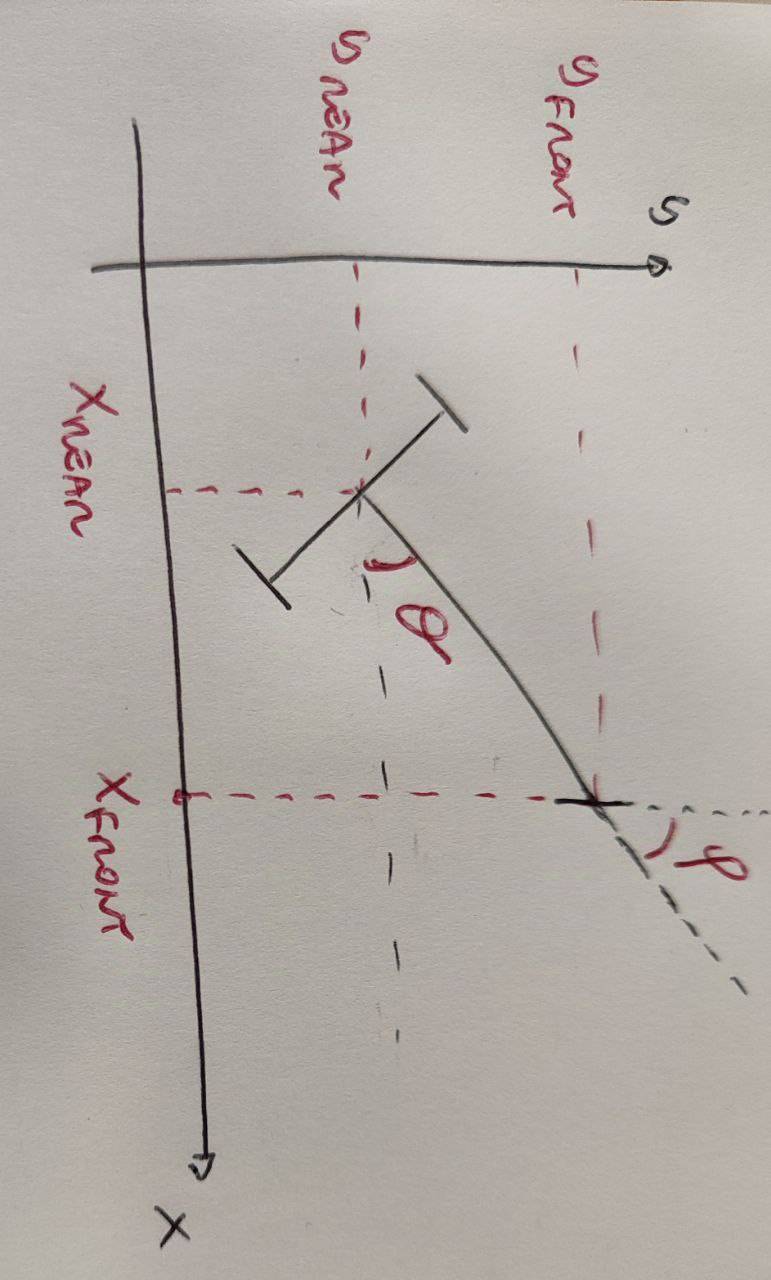 y
yFRONT
yREAR
θ
φ
xREAR
xFRONT
x